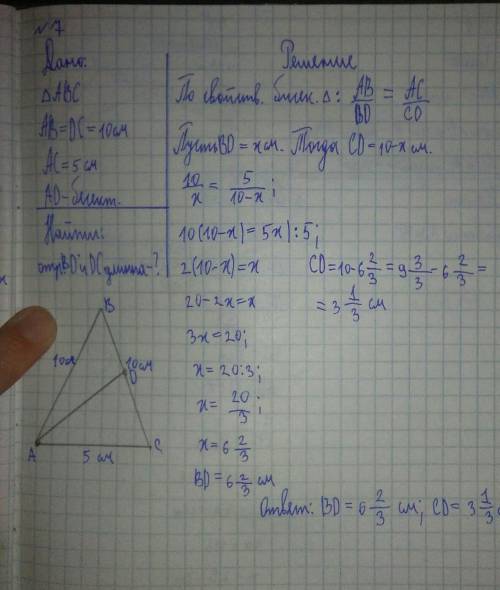 №7
Дано:
△ABC
AB=DC=10см
AC=5 см
AD-биссект.
Найти:
отр. BD и DC длина-?
B
10см
10см
D
A
5 см
C
Решение
По свойств. биссек. △: AB/BD = AC/CD
Пусть BD = x см. Тогда CD=10-x см.
10/x = 5/10-x ;
10(10-x)=5x|:5;
2(10-x)=x
20-2x=x
3x=20;
x=20:3;
x= 20/3 ;
x=6 2/3
BD=6 2/3 см
CD=10-6 2/3 = 9 3/3 - 6 2/3 =
= 3 1/3 см
Ответ: BD= 6 2/3 см; CD= 3 1/3